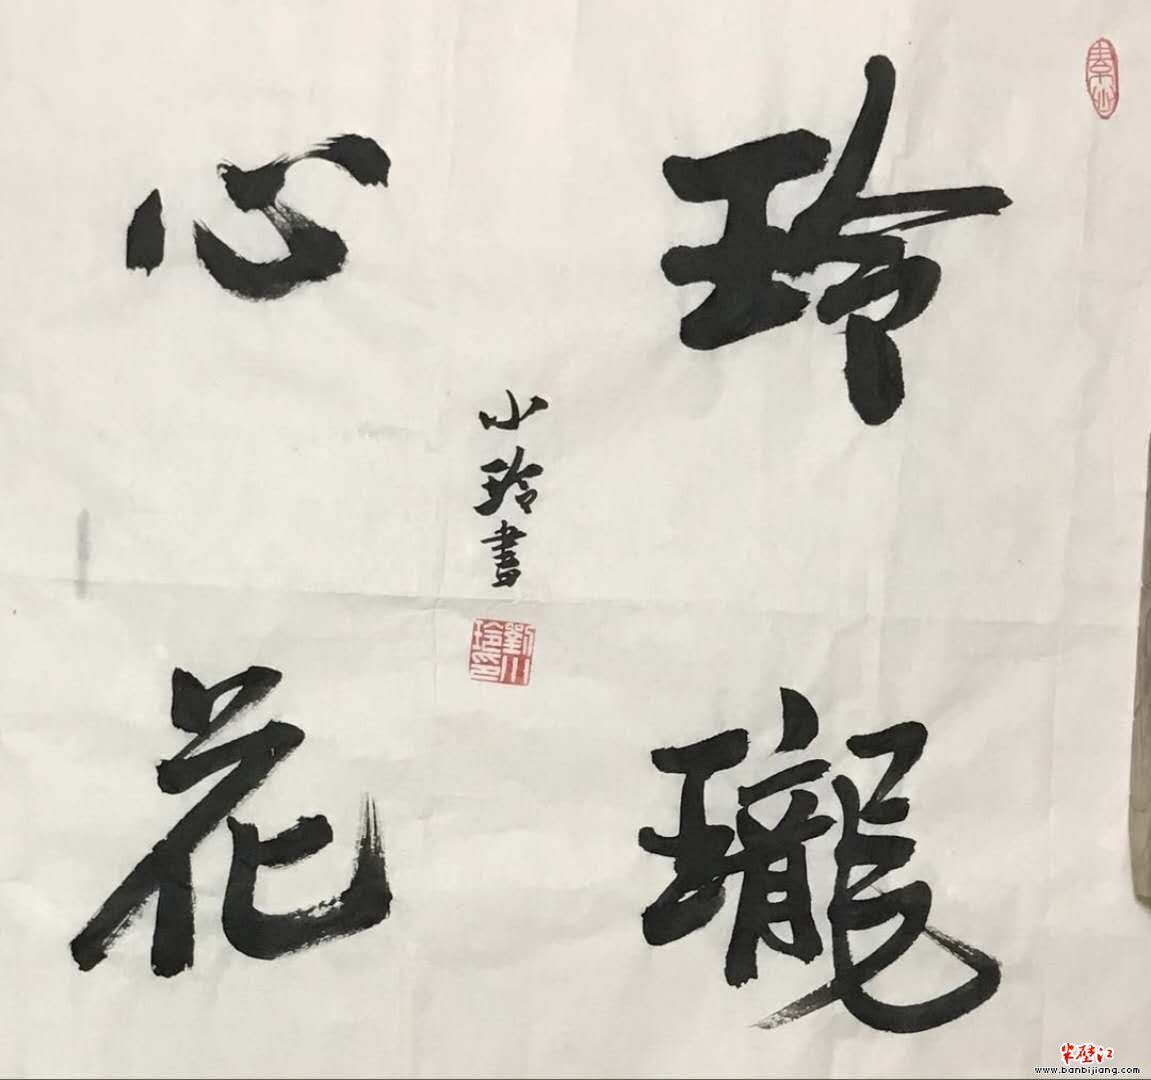 玲瓏
心花
小玲書
劉小
玲印
半壁江
www.banbijiang.com